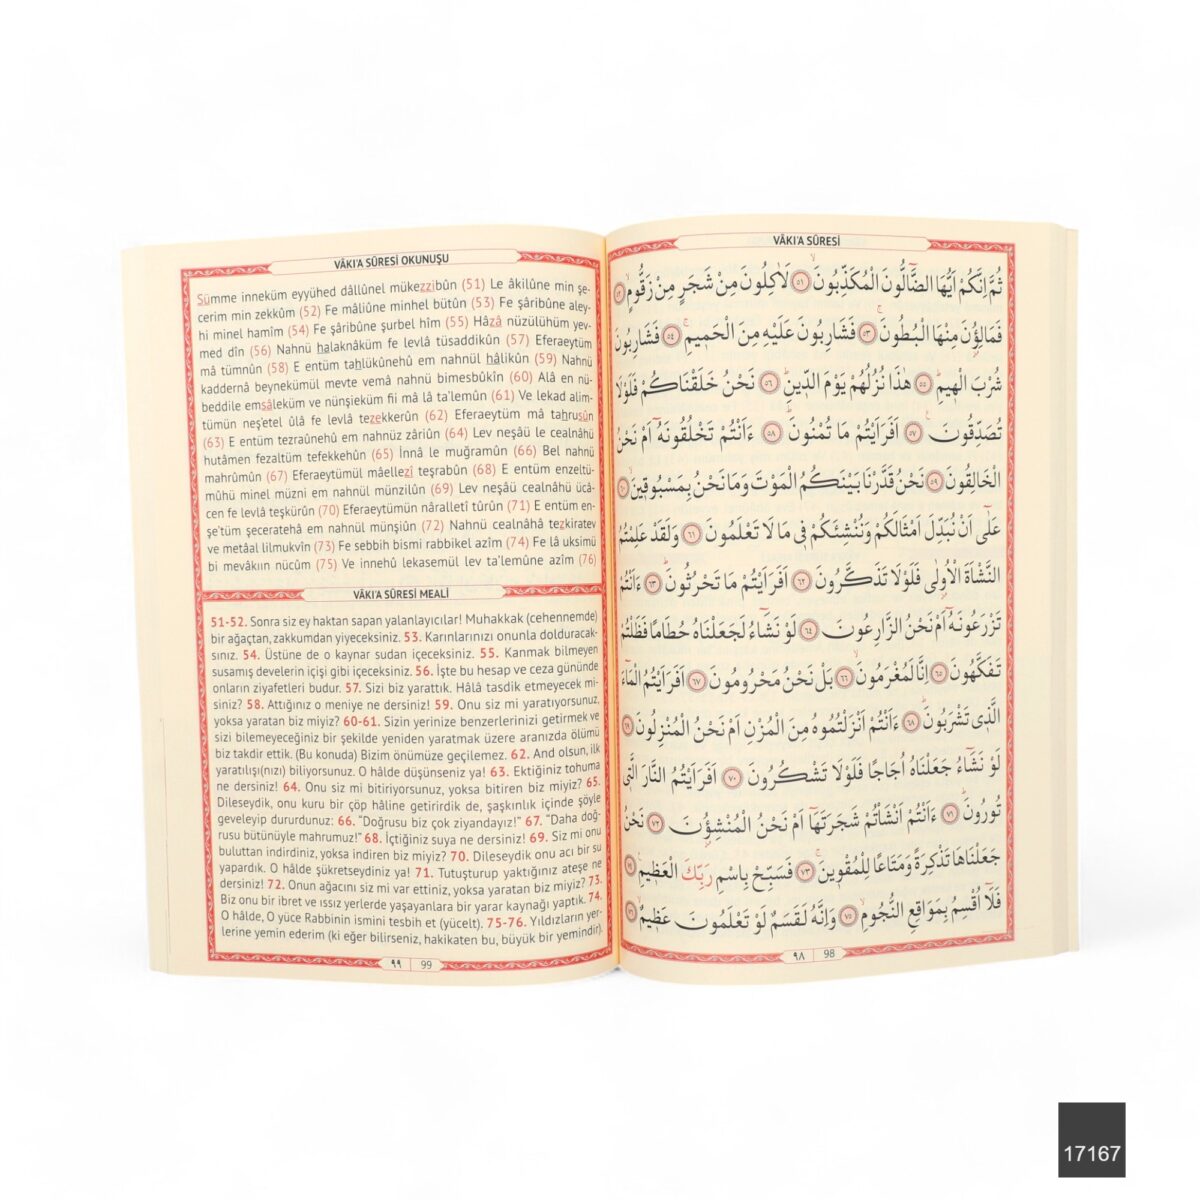 VÂKI'A SÛRESİ
ثُمَّ اِنَّكُمْ اَيُّهَا الضَّٓالُّونَ الْمُكَذِّبُونَۙ ﴿٥١﴾ لَاٰكِلُونَ مِنْ شَجَرٍ مِنْ زَقُّومٍۙ ﴿٥٢﴾
فَمَالِؤُ۫نَ مِنْهَا الْبُطُونَۚ ﴿٥٣﴾ فَشَارِبُونَ عَلَيْهِ مِنَ الْحَم۪يمِۚ ﴿٥٤﴾ فَشَارِبُونَ
شُرْبَ الْه۪يمِۜ ﴿٥٥﴾ هٰذَا نُزُلُهُمْ يَوْمَ الدّ۪ينِۜ ﴿٥٦﴾ نَحْنُ خَلَقْنَاكُمْ فَلَوْلَا
تُصَدِّقُونَۜ ﴿٥٧﴾ اَفَرَاَيْتُمْ مَا تُمْنُونَۜ ﴿٥٨﴾ ءَاَنْتُمْ تَخْلُقُونَهُٓ اَمْ نَحْنُ
الْخَالِقُونَ ﴿٥٩﴾ نَحْنُ قَدَّرْنَا بَيْنَكُمُ الْمَوْتَ وَمَا نَحْنُ بِمَسْبُوق۪ينَۙ ﴿٦٠﴾
عَلٰٓى اَنْ نُبَدِّلَ اَمْثَالَكُمْ وَنُنْشِئَكُمْ ف۪ي مَا لَا تَعْلَمُونَ ﴿٦١﴾ وَلَقَدْ عَلِمْتُمُ
النَّشْاَةَ الْاُو۫لٰى فَلَوْلَا تَذَكَّرُونَ ﴿٦٢﴾ اَفَرَاَيْتُمْ مَا تَحْرُثُونَۜ ﴿٦٣﴾ ءَاَنْتُمْ
تَزْرَعُونَهُٓ اَمْ نَحْنُ الزَّارِعُونَ ﴿٦٤﴾ لَوْ نَشَٓاءُ لَجَعَلْنَاهُ حُطَامًا فَظَلْتُمْ
تَفَكَّهُونَ ﴿٦٥﴾ اِنَّا لَمُغْرَمُونَۙ ﴿٦٦﴾ بَلْ نَحْنُ مَحْرُومُونَ ﴿٦٧﴾ اَفَرَاَيْتُمُ الْمَٓاءَ
الَّذ۪ي تَشْرَبُونَۜ ﴿٦٨﴾ ءَاَنْتُمْ اَنْزَلْتُمُوهُ مِنَ الْمُزْنِ اَمْ نَحْنُ الْمُنْزِلُونَ ﴿٦٩﴾
لَوْ نَشَٓاءُ جَعَلْنَاهُ اُجَاجًا فَلَوْلَا تَشْكُرُونَ ﴿٧٠﴾ اَفَرَاَيْتُمُ النَّارَ الَّت۪ي
تُورُونَۜ ﴿٧١﴾ ءَاَنْتُمْ اَنْشَأْتُمْ شَجَرَتَهَٓا اَمْ نَحْنُ الْمُنْشِؤُ۫نَ ﴿٧٢﴾ نَحْنُ
جَعَلْنَاهَا تَذْكِرَةً وَمَتَاعًا لِلْمُقْو۪ينَۚ ﴿٧٣﴾ فَسَبِّحْ بِاسْمِ رَبِّكَ الْعَظ۪يمِ۟ ﴿٧٤﴾
فَلَٓا اُقْسِمُ بِمَوَاقِعِ النُّجُومِۙ ﴿٧٥﴾ وَاِنَّهُ لَقَسَمٌ لَوْ تَعْلَمُونَ عَظ۪يمٌۙ ﴿٧٦﴾
٩٨ 98
VÂKI'A SÛRESİ OKUNUŞU
Sümme inneküm eyyühed dâllûnel mükezzibûn (51) Le âkilûne min şe-
cerim min zekkûm (52) Fe mâliûne minhel bütûn (53) Fe şâribûne aley-
hi minel hamîm (54) Fe şâribûne şurbel hîm (55) Hâzâ nüzülühüm yev-
med dîn (56) Nahnü halaknâküm fe levlâ tüsaddikûn (57) Eferaeytüm
mâ tümnûn (58) E entüm tahlükûnehû em nahnül hâlikûn (59) Nahnü
kaddernâ beynekümül mevte vemâ nahnü bimesbûkîn (60) Alâ en nü-
beddile emsâleküm ve nünşieküm fii mâ lâ ta'lemûn (61) Ve lekad alim-
tümün neş'etel ûlâ fe levlâ tezekkerûn (62) Eferaeytüm mâ tahrusûn
(63) E entüm tezraûnehû em nahnüz zâriûn (64) Lev neşâü le cealnâhü
hutâmen fezaltüm tefekkehûn (65) İnnâ le muğramûn (66) Bel nahnü
mahrûmûn (67) Eferaeytümül mâellezî teşrabûn (68) E entüm enzeltü-
mûhü minel müzni em nahnül münzilûn (69) Lev neşâü cealnâhü ücâ-
cen fe levlâ teşkürûn (70) Eferaeytümün nâralletî tûrûn (71) E entüm en-
şe'tüm şeceratehâ em nahnül münşiûn (72) Nahnü cealnâhâ tezkiratev
ve metâal lilmukvîn (73) Fe sebbih bismi rabbikel azîm (74) Fe lâ uksimü
bi mevâkıın nücûm (75) Ve innehû lekasemül lev ta'lemûne azîm (76)
VÂKI'A SÛRESİ MEALİ
51-52. Sonra siz ey haktan sapan yalanlayıcılar! Muhakkak (cehennemde)
bir ağaçtan, zakkumdan yiyeceksiniz. 53. Karınlarınızı onunla dolduracak-
sınız. 54. Üstüne de o kaynar sudan içeceksiniz. 55. Kanmak bilmeyen
susamış develerin içişi gibi içeceksiniz. 56. İşte bu hesap ve ceza gününde
onların ziyafetleri budur. 57. Sizi biz yarattık. Hâlâ tasdik etmeyecek mi-
siniz? 58. Attığınız o meniye ne dersiniz! 59. Onu siz mi yaratıyorsunuz,
yoksa yaratan biz miyiz? 60-61. Sizin yerinize benzerlerinizi getirmek ve
sizi bilemeyeceğiniz bir şekilde yeniden yaratmak üzere aranızda ölümü
biz takdir ettik. (Bu konuda) Bizim önümüze geçilemez. 62. And olsun, ilk
yaratılışı(nızı) biliyorsunuz. O hâlde düşünseniz ya! 63. Ektiğiniz tohuma
ne dersiniz! 64. Onu siz mi bitiriyorsunuz, yoksa bitiren biz miyiz? 65.
Dileseydik, onu kuru bir çöp hâline getirirdik de, şaşkınlık içinde şöyle
geveleyip dururdunuz: 66. "Doğrusu biz çok ziyandayız!" 67. "Daha doğ-
rusu bütünüyle mahrumuz!" 68. İçtiğiniz suya ne dersiniz! 69. Siz mi onu
buluttan indirdiniz, yoksa indiren biz miyiz? 70. Dileseydik onu acı bir su
yapardık. O hâlde şükretseydiniz ya! 71. Tutuşturup yaktığınız ateşe ne
dersiniz! 72. Onun ağacını siz mi var ettiniz, yoksa yaratan biz miyiz? 73.
Biz onu bir ibret ve ıssız yerlerde yaşayanlara bir yarar kaynağı yaptık. 74.
O hâlde, O yüce Rabbinin ismini tesbih et (yücelt). 75-76. Yıldızların yer-
lerine yemin ederim (ki eğer bilirseniz, hakikaten bu, büyük bir yemindir).
٩٩ 99
17167